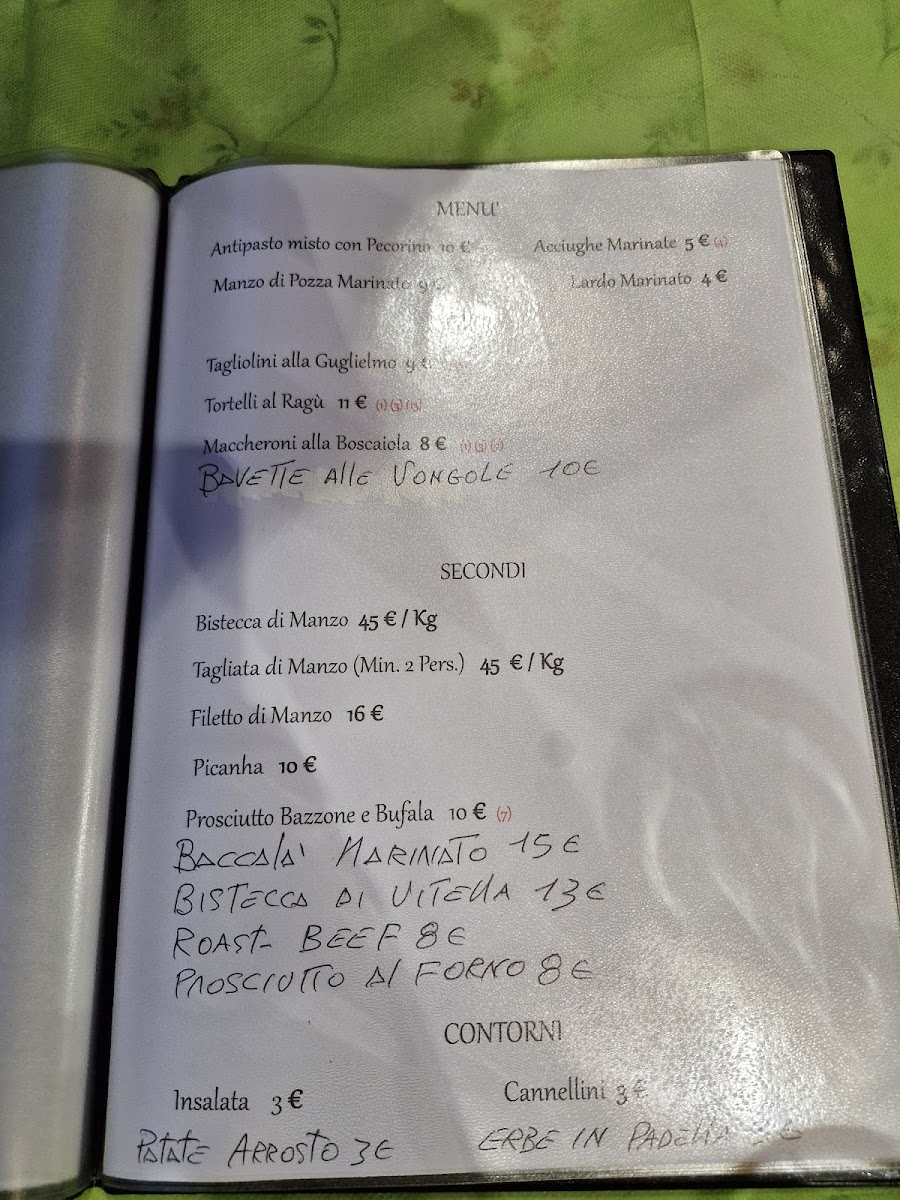 MENU'
Antipasto misto con Pecorino 10 € Acciughe Marinate 5 € (4)
Manzo di Pozza Marinato 9 € Lardo Marinato 4 €
Tagliolini alla Guglielmo 9 €
Tortelli al Ragù 11 € (1) (3) (15)
Maccheroni alla Boscaiola 8 €
BAVETTE AllE VONGOLE 10€
SECONDI
Bistecca di Manzo 45 € / Kg
Tagliata di Manzo (Min. 2 Pers.) 45 € / Kg
Filetto di Manzo 16 €
Picanha 10 €
Prosciutto Bazzone e Bufala 10 € (7)
BACCALA' MARINATO 15€
BISTECCA DI VITELLA 13€
ROAST- BEEF 8€
PROSCIUTTO Al FORNO 8€
CONTORNI
Insalata 3 € Cannellini 3 €
PATATE ARROSTO 3€ ERBE IN PADELLA €